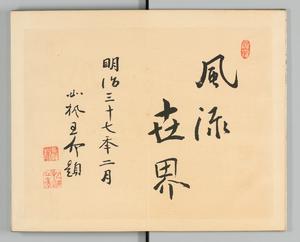 風流
世界
明治三十七年二月
題